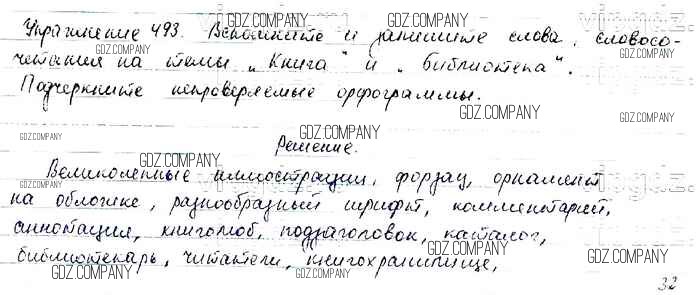 Упражнение 493. Вспомните и запишите слова, словосо-
четания на темы „Книга“ и „Библиотека“.
Подчеркните непроверяемые орфограммы.
Решение.
Великолепные иллюстрации, форзац, орнамент
на обложке, разнообразный шрифт, комментарий,
аннотация, книголюб, подзаголовок, каталог,
библиотекарь, читатели, книгохранилище,
32
GDZ.COMPANY
GDZ.COMPANY
GDZ.COMPANY
GDZ.COMPANY
GDZ.COMPANY
GDZ.COMPANY
GDZ.COMPANY
GDZ.COMPANY
GDZ.COMPANY
GDZ.COMPANY
GDZ.COMPANY
GDZ.COMPANY
GDZ.COMPANY
GDZ.COMPANY